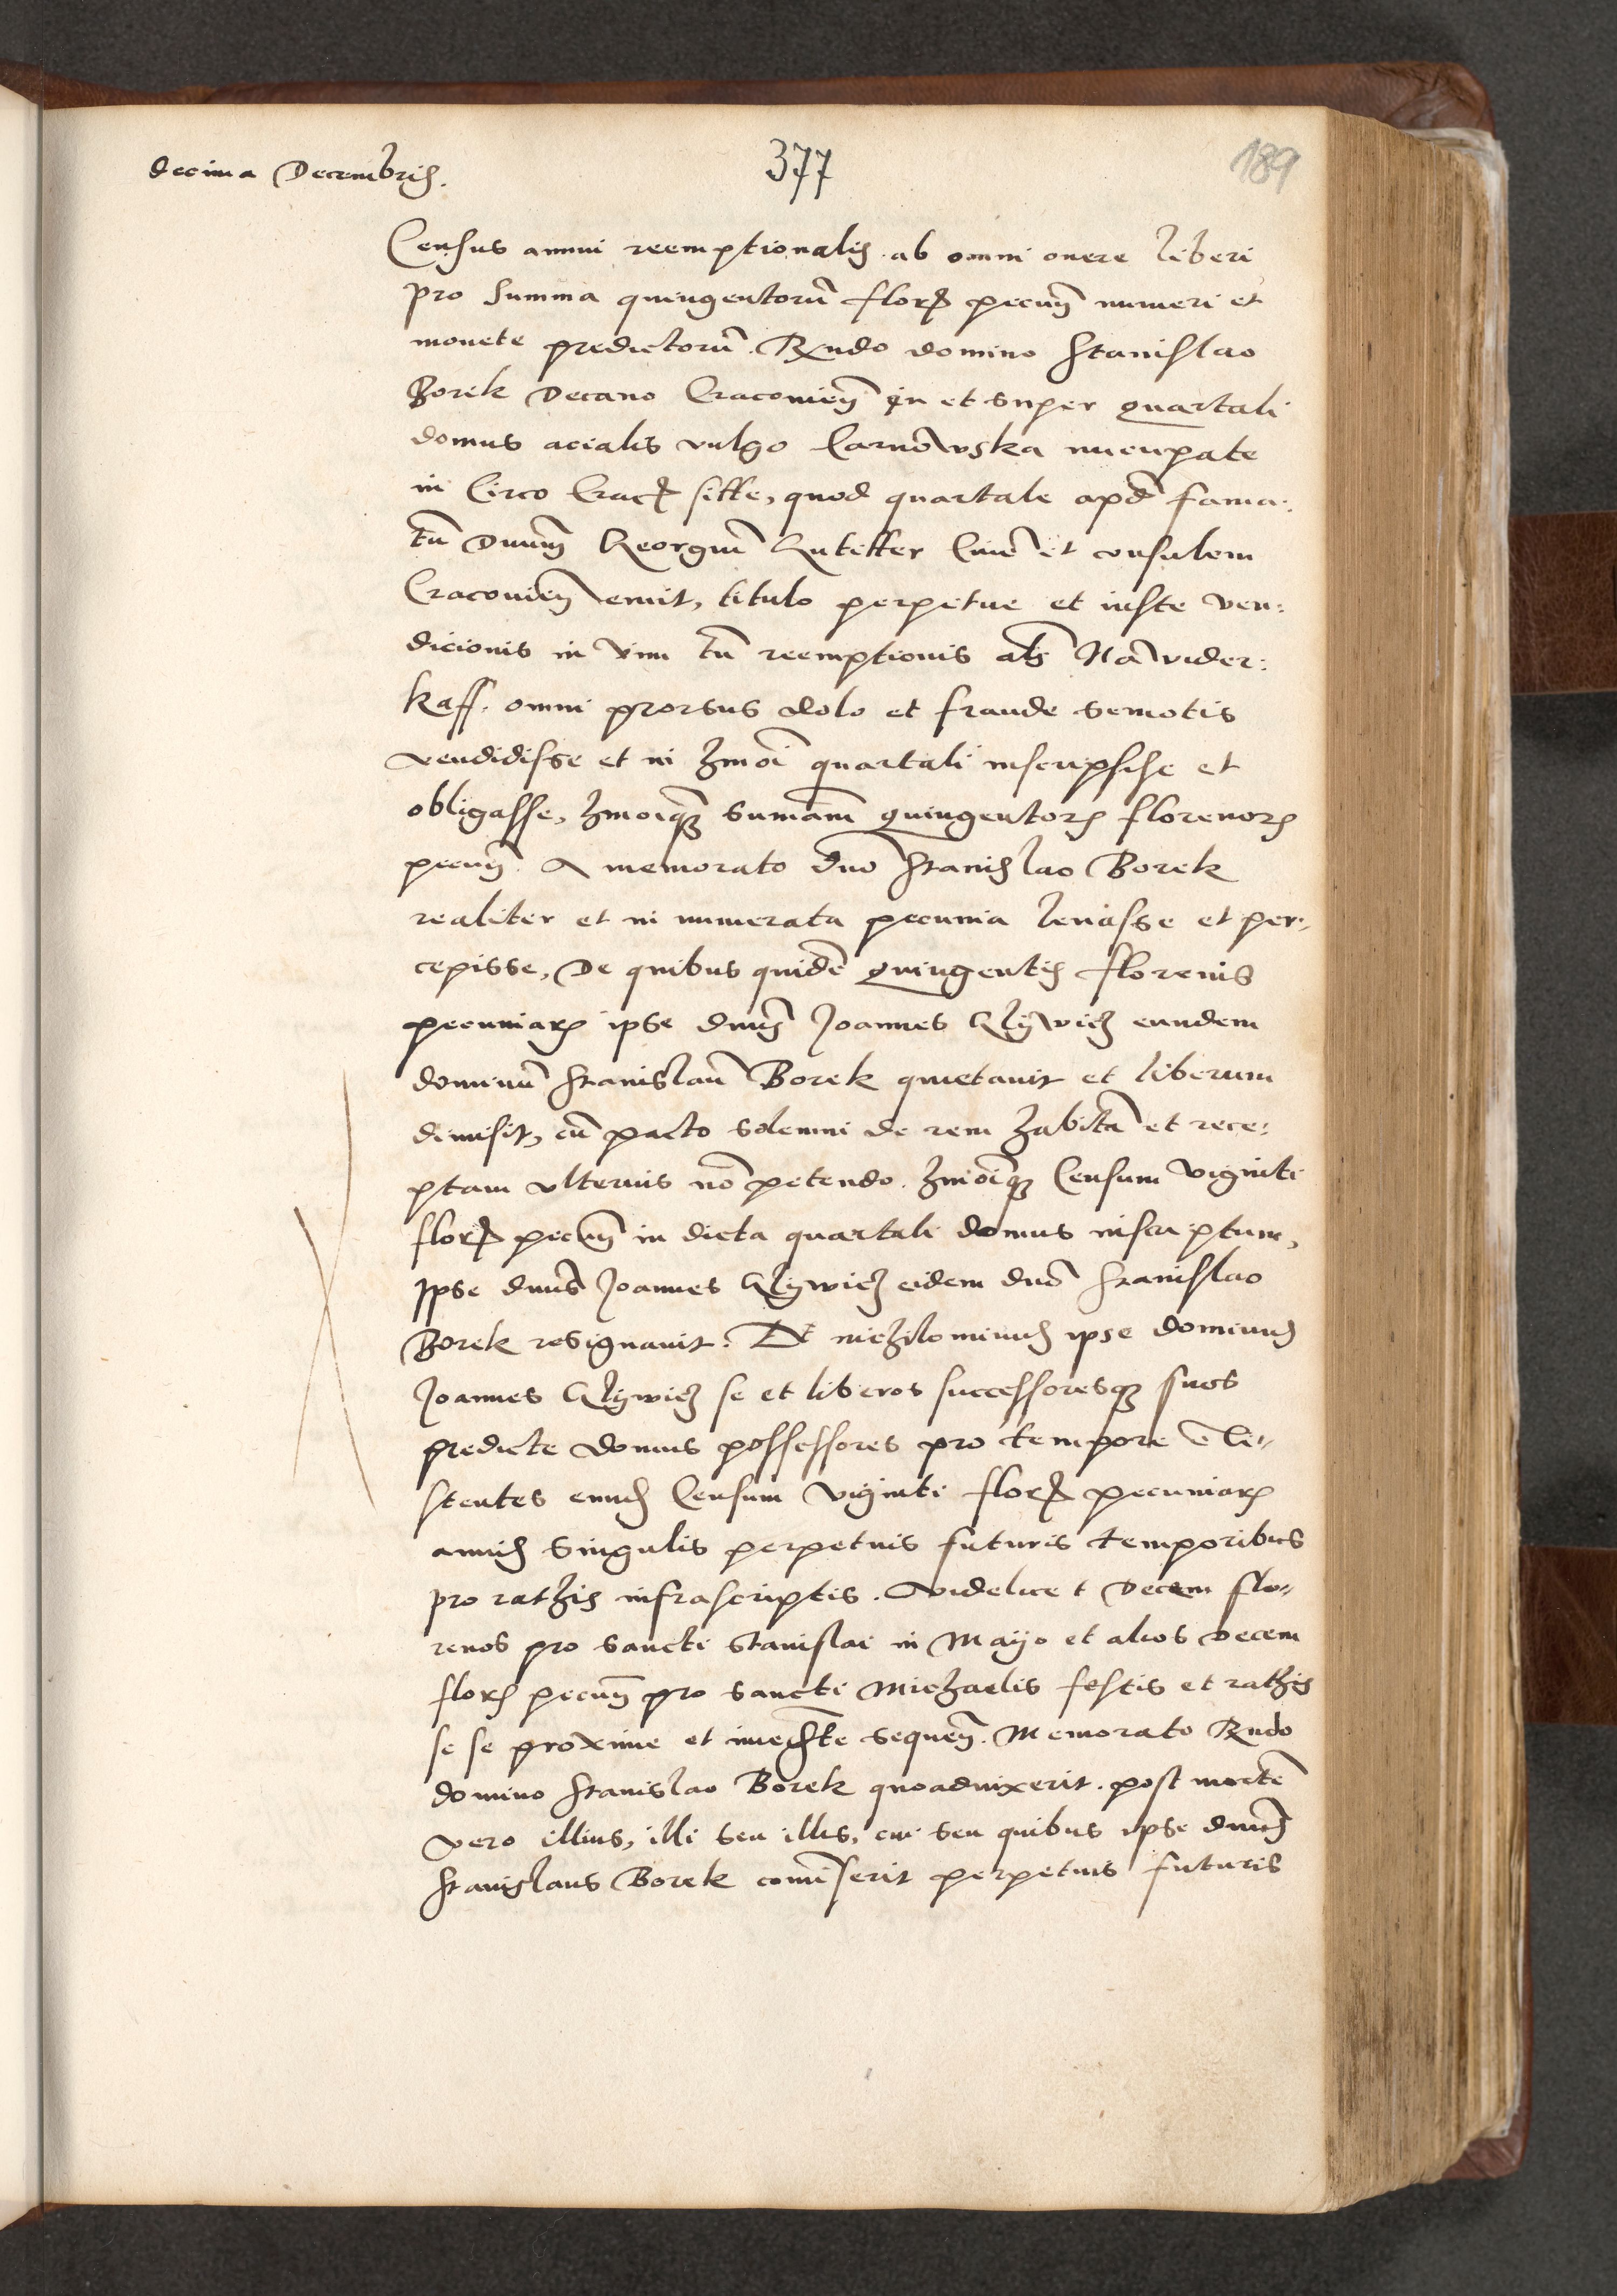 decima Decembris.
377
189
Census annui reemptionalis ab omni onere liberi
pro summa quingentorũ florꝝ pecuñ numeri et
monete predictorũ. Rndo domino Stanislao
Borek Decano Cracovieñ in et super quartali
domus acialis vulgo Tarnowska nucupate
in Circo Cracꝝ sitte, quod quartale apd fama:
tũ Dnum Georgiũ Gutetter Ciuẽ et consulem
Cracovieñ emit, titulo perpetue et iuste ven:
dicionis in vim tñ reemptionis als Na wider:
kaff. omni prorsus dolo et fraude semotis
vendidisse et in hmoi quartali inscripsisse et
obligasse, hmoiqꝫ sumam quingentorꝝ florenorꝝ
pecuñ. A memorato dno Stanislao Borek
realiter et in numerata pecunia leuasse et per:
cepisse, De quibus quidẽ quingentis florenis
pecuniarꝝ ipse dnus Joannes Glywicz eundem
dominũ Stanislaũ Borek quietauit et liberum
dimisit, cũ pacto solenni de rem habitã et rece:
ptam vlterius nõ petendo. hmoiqꝫ Censum viginti
florꝝ pecuñ in dicta quartali domus inscriptum,
Ipse dnus Joannes Glywicz eidem dno Stanislao
Borek resignauit. Et nichilominus ipse dominus
Joannes Glywicz se et liberos successoresqꝫ suos
predicte domus possessores pro tempore exi:
stentes eund Censum viginti florꝝ pecuniarꝝ
annis singulis perpetuis futuris temporibus
pro rathis infrascriptis. Videlicet Decem flo:
renos pro sancti Stanislai in Mayo et alios decem
florꝝ pecuñ pro sancti Michaelis festis et rathis
se se proxime et imediate sequeñ. Memorato Rndo
domino Stanislao Borek quoaduixerit. post mortẽ
vero illius, illi seu illis, cui seu quibus ipse dnus
Stanislaus Borek comiserit perpetuis futuris